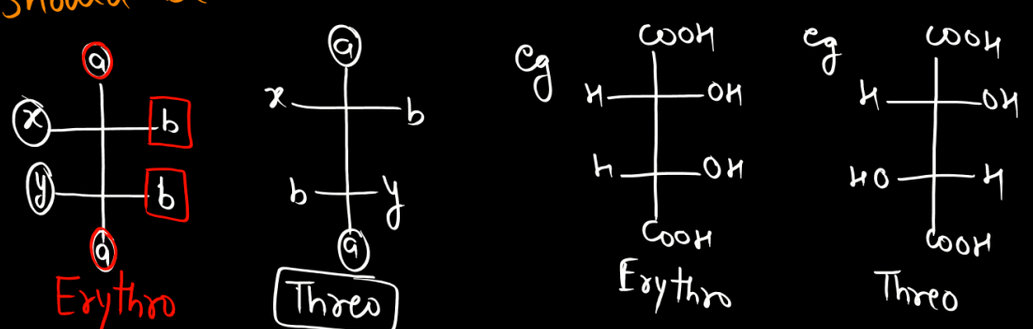 should
a
x b
y b
a
Erythro
a
x b
b y
a
Threo
eg
COOH
H OH
H OH
COOH
Erythro
eg
COOH
H OH
HO H
COOH
Threo